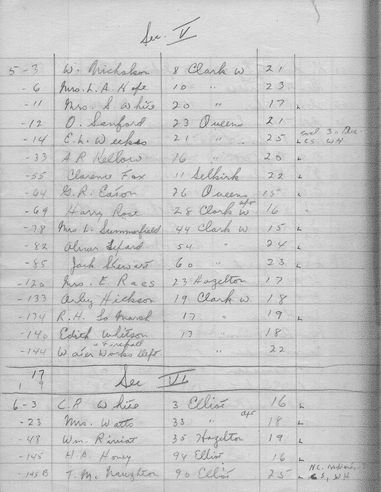 Sec. V
5-3 W. Nicholson 8 Clark W 21
-6 Mrs. L. A. Hope 10 " 23
-11 Mrs. S. White 20 " 17 L
-12 O. Sanford 23 Queens 21
-14 E. L. Weekes 21 " 25 L CS WH
-33 A R Kellow 16 " 20 L
-55 Clarence Fox 11 Selkirk 22 L
-64 G. R. Eason 26 Queens 15 L
-69 Harry Rose 28 Clark W apt 16
-78 Mrs L. Summerfield 44 Clark W 15 L
-82 Oliver 54 " 24 L
-85 Jack Stewart 60 " 23 L
-120 Mrs. E Raes 23 Hazelton 17
-133 Arley Hickson 19 Clark W 18
-134 R. H. La Marsh 17 " 19 L
-140 Edith Whitson 13 " 18
-144 Water Works Dept + firehall " 22
17
1 9
Sec VI
6-3 L. P. White 3 Elliot 16 L
-23 Mrs. Watts 33 " apt 18 L
-48 Wm. 35 Hazelton 19 L
-145 H. A. Honey 94 Elliot 16 L
-105B T. M. Naughton 90 Elliot 25 L CS, WH